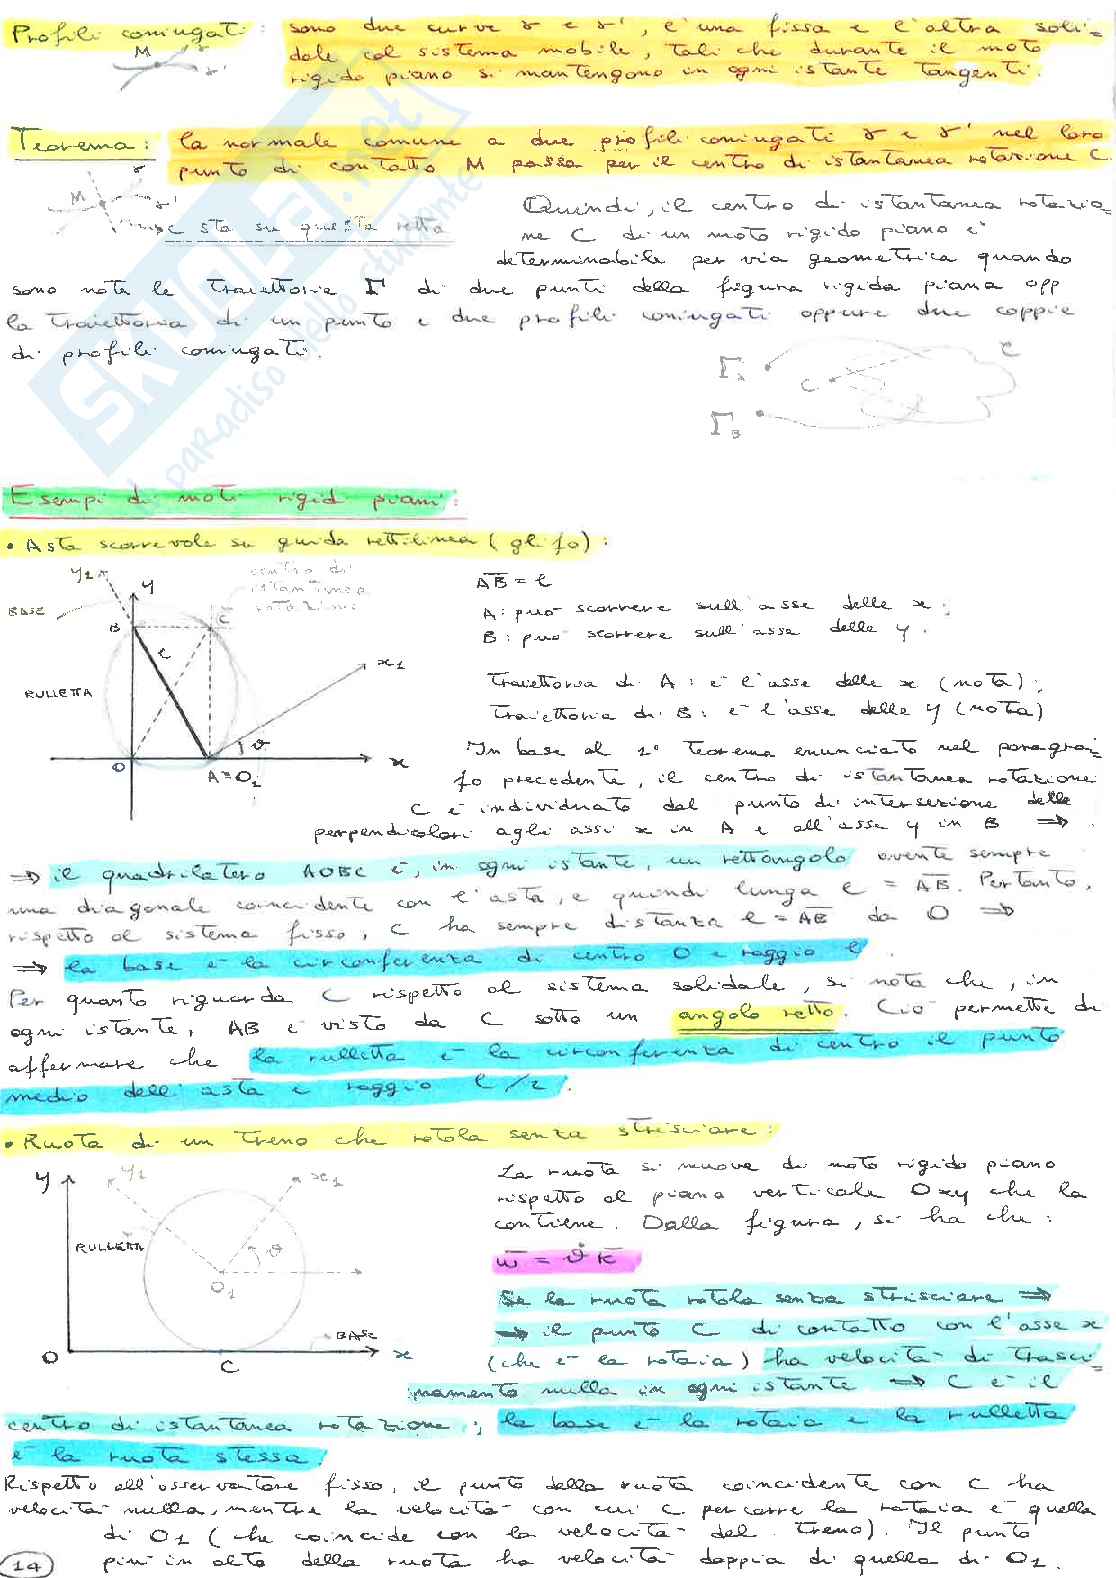 Profili coniugati: sono due curve γ e γ', l'una fissa e l'altra soli-
dale col sistema mobile, tali che durante il moto
rigido piano si mantengono in ogni istante tangenti.
M
γ
γ'
Teorema: la normale comune a due profili coniugati γ e γ' nel loro
punto di contatto M passa per il centro di istantanea rotazione C.
M
γ
γ'
C sta su questa retta
Quindi, il centro di istantanea rotazio-
ne C di un moto rigido piano è
determinabile per via geometrica quando
sono note le traiettorie Γ di due punti della figura rigida piana opp
la traiettoria di un punto e due profili coniugati oppure due coppie
di profili coniugati.
C
Γ_B
SKUOLA.net
paradiso dello studente
Esempi di moti rigidi piani:
• Asta scorrevole su guida rettilinea (glifo):
y1
y
centro di
istantanea
rotazione
BASE
B
C
l
x1
RULLETTA
ϑ
O
A≡O1
x
AB = l
A: può scorrere sull'asse delle x;
B: può scorrere sull'asse delle y.
Traiettoria di A: è l'asse delle x (nota);
Traiettoria di B: è l'asse delle y (nota)
In base al 1° teorema enunciato nel paragra-
fo precedente, il centro di istantanea rotazione
C è individuato dal punto di intersezione delle
perpendicolari agli assi x in A e all'asse y in B ⇒
⇒ il quadrilatero AOBC è, in ogni istante, un rettangolo avente sempre
una diagonale coincidente con l'asta, e quindi lunga l = AB. Pertanto,
rispetto al sistema fisso, C ha sempre distanza l = AB da O ⇒
⇒ la base è la circonferenza di centro O e raggio l.
Per quanto riguarda C rispetto al sistema solidale, si nota che, in
ogni istante, AB è visto da C sotto un angolo retto. Ciò permette di
affermare che la rulletta è la circonferenza di centro il punto
medio dell'asta e raggio l/2.
• Ruota di un treno che rotola senza strisciare:
y
y1
x1
RULLETTA
ϑ
O1
BASE
O
C
x
La ruota si muove di moto rigido piano
rispetto al piano verticale Oxy che la
contiene. Dalla figura, si ha che:
ω̄ = ϑ̇ k̄
Se la ruota rotola senza strisciare ⇒
⇒ il punto C di contatto con l'asse x
(che è la rotaia) ha velocità di trasci-
namento nulla in ogni istante ⇒ C è il
centro di istantanea rotazione; la base è la rotaia e la rulletta
è la ruota stessa.
Rispetto all'osservatore fisso, il punto della ruota coincidente con C ha
velocità nulla, mentre la velocità con cui C percorre la rotaia è quella
di O1 (che coincide con la velocità del treno). Il punto
più in alto della ruota ha velocità doppia di quella di O1.
14